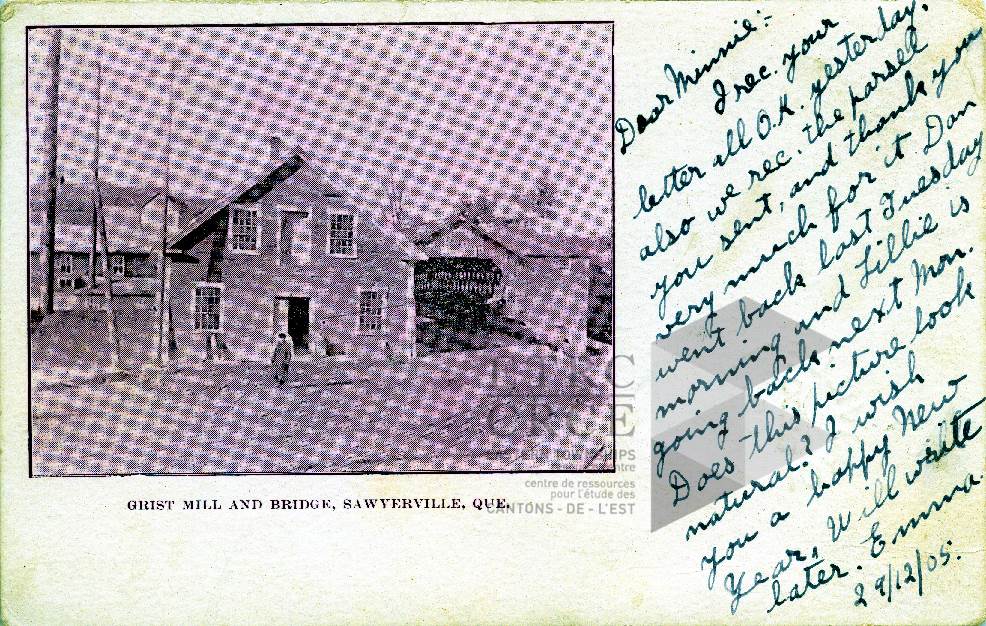 Dear Minnie:-
I rec. your
letter all O.K. yesterday.
also we rec. the parsel
you sent, and thank you
very much for it Dan
went back last Tuesday
morning and Lillie is
going back next Mon.
Does this picture look
natural? I wish
you a happy New
Year, Will write
later. Emma.
29/12/05.
GRIST MILL AND BRIDGE, SAWYERVILLE, QUE.
centre de ressources
pour l'étude des
CANTONS - DE - L'EST